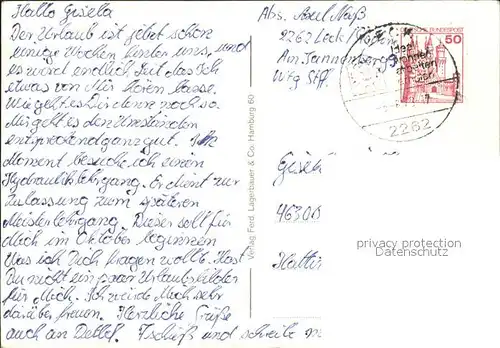 Hallo Gisela
Der Urlaub ist jetzt schon
einige Wochen hinter uns, und
es wird endlich Zeit das Ich
etwas von Mir hören lasse.
Wie geht es Dir denn noch so.
Mir geht es den Umständen
entsprechend ganz gut. Im
Moment besuche ich einen
Hydrauliklehrgang. Er dient zur
Zulassung zum späteren
Meisterlehrgang. Dieser soll für
Mich im Oktober beginnen
Was ich Dich fragen wollte. Hast
Du nicht ein paar Urlaubsbilder
für Mich. Ich würde Mich sehr
darüber freuen. Herzliche Grüße
auch an Detlef. Tschüß und schreibe
Verlag Ferd. Lagerbauer & Co. Hamburg 60
Abs. Axel Maß
2262 Leck
Am Tannenberg
Wtg Stff.
DEUTSCHE BUNDESPOST
50
2262
Gisel
4630
Hatti
privacy protection
Datenschutz